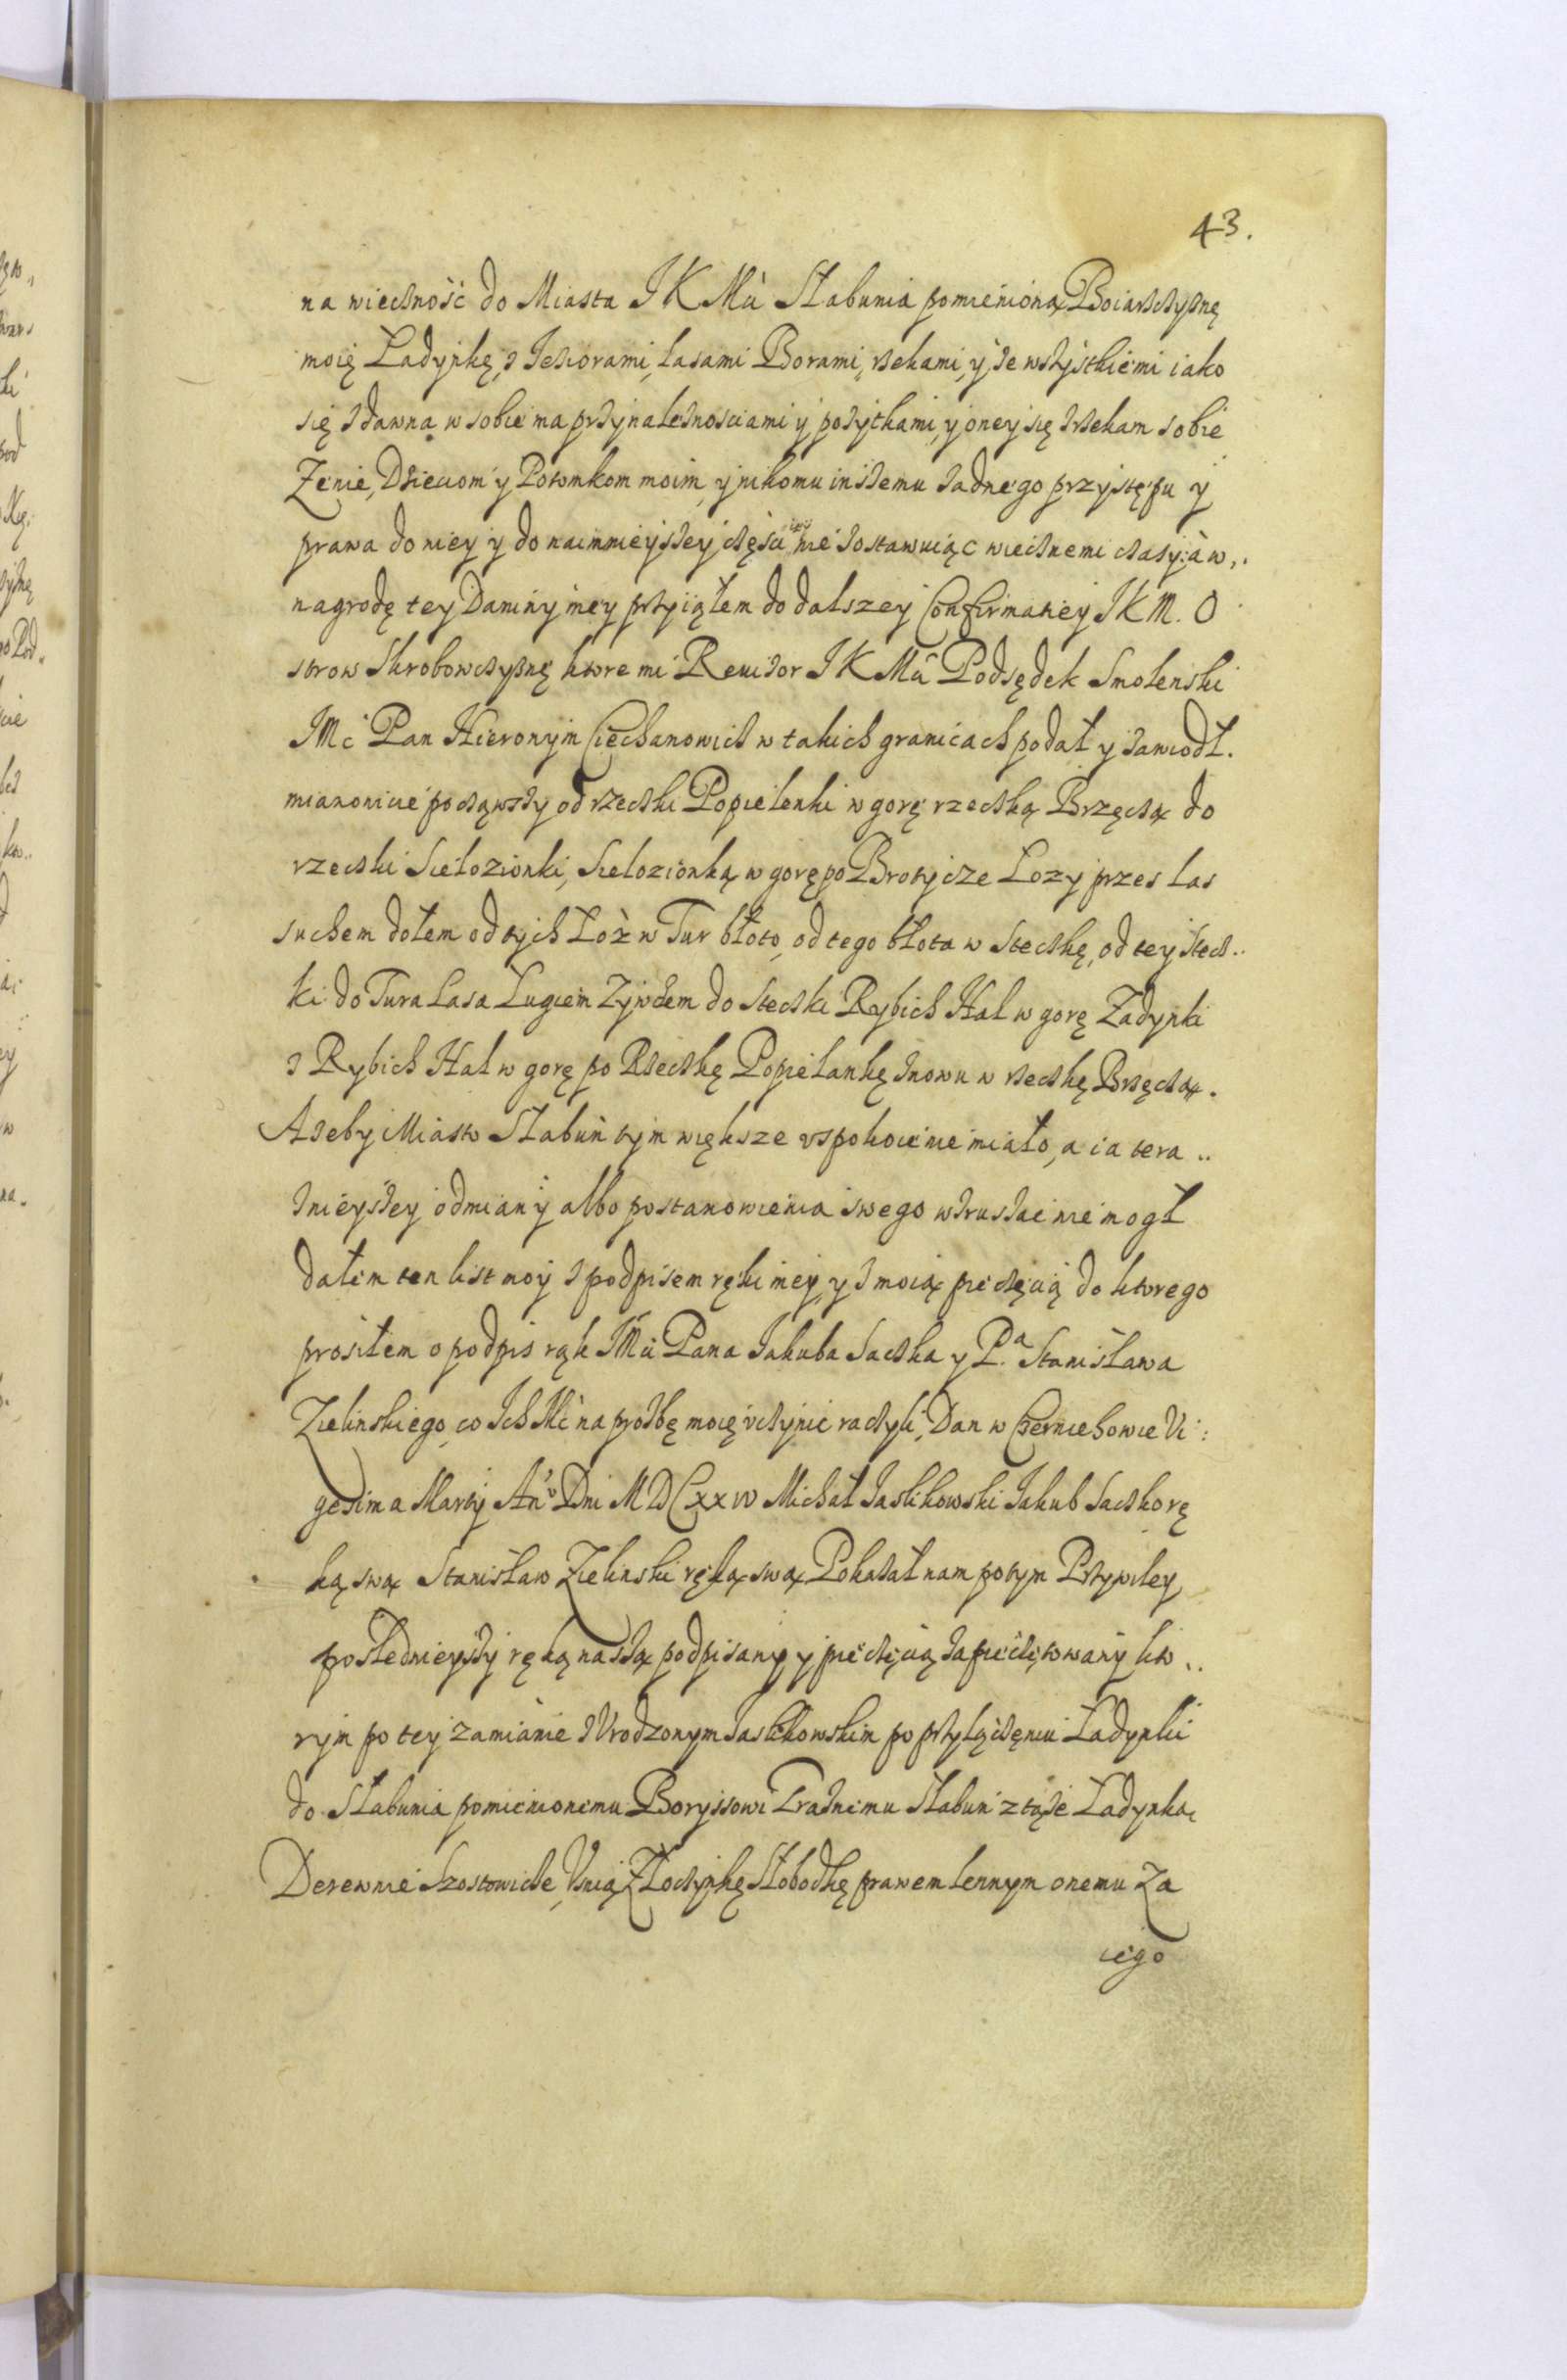 43.
na wieczność do Miasta J K Mći Słabunia pomienioną Boiarszczyznę
moię Ładynkę, z Jeziorami, lasami Borami, rzekami, y ze wszystkiemi iako
się zdawna w sobie ma przynależnosciami y pożytkami, y oney się zrzekam sobie
Żenie, Dzieciom y Potomkom moim, y nikomu inszemu żadnego przystępu y
prawa do niey y do naimnieyszey częsci iey nie zostawuiąc wiecznemi czasy: a w,,
nagrodę tey Daniny mey przyiąłem do dalszey Confirmatiey J K M. O
strow Skrobowczyznę ktore mi Reuizor J K Mći Podsędek Smolenski
JMć Pan Hieronym Ciechanowicz w takich granicach podał y zawiodł.
mianowicie począwszy od rzeczki Popielenki w gorę rzeczką Brzęczą do
rzeczki Sielozionki, Sielozionką w gorę po Brotycze Łozy przez las
suchem dołem od tych Łoz w Tur błoto, od tego błota w Steczkę, od tey stecz..
ki do Tura Lasa Ługiem Zywcem do Steczki Rybich Hal w gorę Ładynki
z Rybich Hal w gorę po Rzeczkę Popielankę znowu w rzeczkę Brzęczą.
A żeby Miasto Słabuń tym większe vspokoienie miało, a ia tera..
znieyszey odmiany albo postanowienia swego wzruszac nie mogł
dałem ten list moy z podpisem ręki mey, y z moią pieczęcią do ktorego
prosiłem o podpis rąk JMci Pana Jakuba Saczka y P.a Stanisława
Zielinskiego, co Ich Mć na prozbę moię vczynic raczyli, Dan w Czerniehowie Vi:
gesima Martij Anno Dni M D C xx w Michał Jaslikowski Jakub Saczko rę
ką swą Stanisław Zielinski ręką swą Pokazał nam potym Przywiley
poslednieyszy ręką naszą podpisany y pieczęcią zapieczętowany kto..
rym po tey zamianie z Vrodzonym Jaslikowskim po przyłączeniu Ładynki
do Słabunia pomienionemu Boryssowi Graznemu Słabuń z tąże Ładynką
Derewnie Szostowicze, Vsnią Złoczynkę Słobodkę prawem lennym onemu za
iego